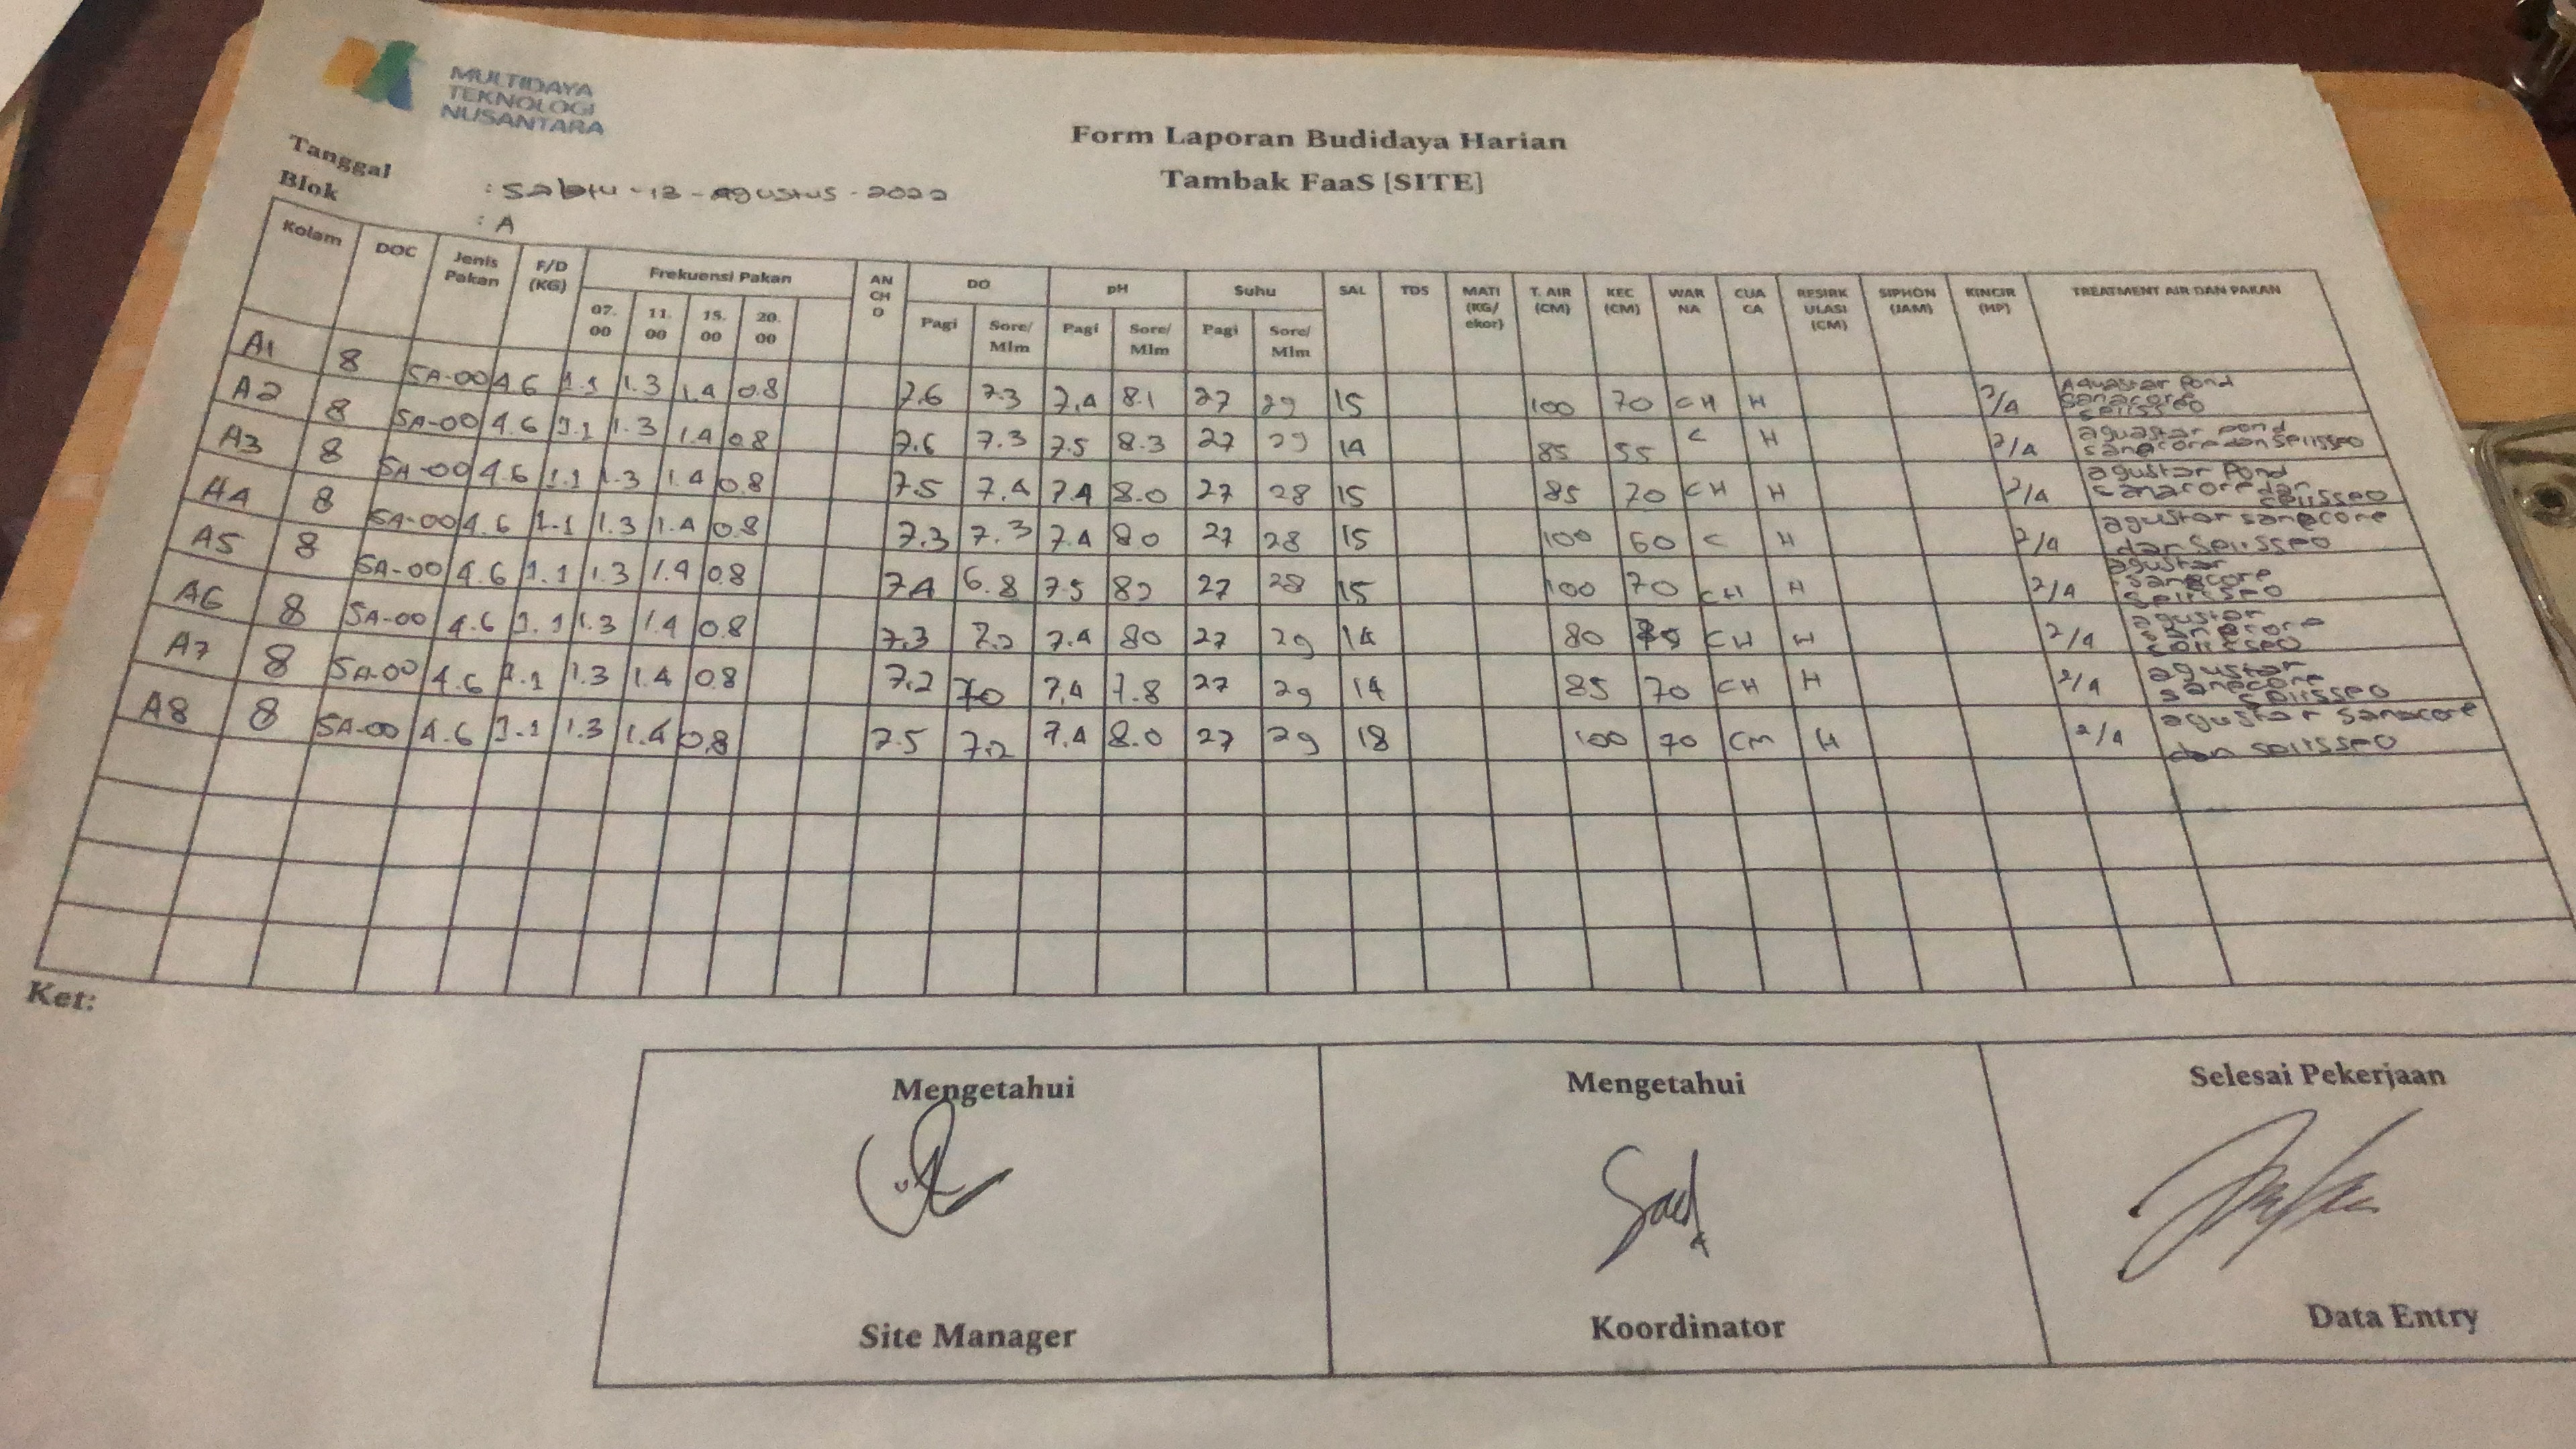 MULTIDAYA
TEKNOLOGI
NUSANTARA
Form Laporan Budidaya Harian
Tambak FaaS [SITE]
Tanggal : Sabtu - 12 - Agustus - 2020
Blok : A
Kolam DOC Jenis Pakan F/D (KG) Frekuensi Pakan 07.00 11.00 15.00 20.00 ANCHO DO Pagi Sore/Mlm pH Pagi Sore/Mlm Suhu Pagi Sore/Mlm SAL TDS MATI (KG/ekor) T. AIR (CM) KEC (CM) WARNA CUACA RESIRKULASI (CM) SIPHON (JAM) KINCIR (HP) TREATMENT AIR DAN PAKAN
A1 8 SA-00 4.6 1.1 1.3 1.4 0.8 7.6 7.3 7.4 8.1 27 29 15 100 70 CH H 2/4 Aquastar Pond sanacore
A2 8 SA-00 4.6 1.1 1.3 1.4 0.8 7.6 7.3 7.5 8.3 27 29 14 85 55 C H 2/4 aguastar pond sanacore dan
A3 8 SA-00 4.6 1.1 1.3 1.4 0.8 7.5 7.4 7.4 8.0 27 28 15 85 70 CH H 2/4 agustar Pond sanacore dan
A4 8 SA-00 4.6 1.1 1.3 1.4 0.8 7.3 7.3 7.4 8.0 27 28 15 100 60 C H 2/4 agustar sanacore dan
A5 8 SA-00 4.6 1.1 1.3 1.4 0.8 7.4 6.8 7.5 27 28 15 100 70 CH H 2/4 agustar sanacore
A6 8 SA-00 4.6 1.1 1.3 1.4 0.8 7.3 7.4 80 27 29 14 80 CH H 2/4 agustar sanacore
A7 8 SA-00 4.6 1.1 1.3 1.4 0.8 7.2 70 7.4 7.8 27 29 14 85 70 CH H 2/4 agustar sanacore
A8 8 SA-00 4.6 1.1 1.3 1.4 0.8 7.5 7.4 8.0 27 29 18 100 70 CM H 2/4 agustar sanacore dan
Ket:
Mengetahui Mengetahui Selesai Pekerjaan
Site Manager Koordinator Data Entry